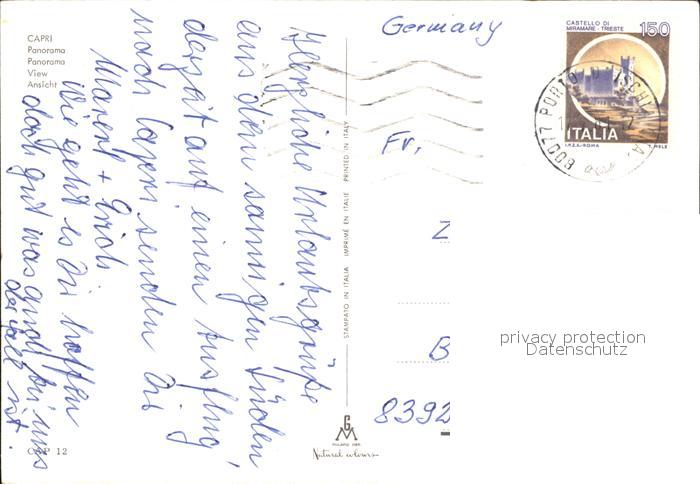 CAPRI
Panorama
Panorama
View
Ansicht
Herzliche Urlaubsgrüße
aus dem sonnigen Süden,
derzeit auf einen Ausflug
nach Capri senden Dir
+ Erich
Wie geht es Dir hoffen
doch gut was auch bei uns
der Fall ist.
CAP 12
STAMPATO IN ITALIA IMPRIMÉ EN ITALIE PRINTED IN ITALY
MILANO
Natural colours
Germany
Fr.
Z
B
8392
CASTELLO DI
MIRAMARE - TRIESTE
150
ITALIA
I.P.Z.S. - ROMA
T. MELE
80077 PORTO D'ISCHIA
privacy protection
Datenschutz